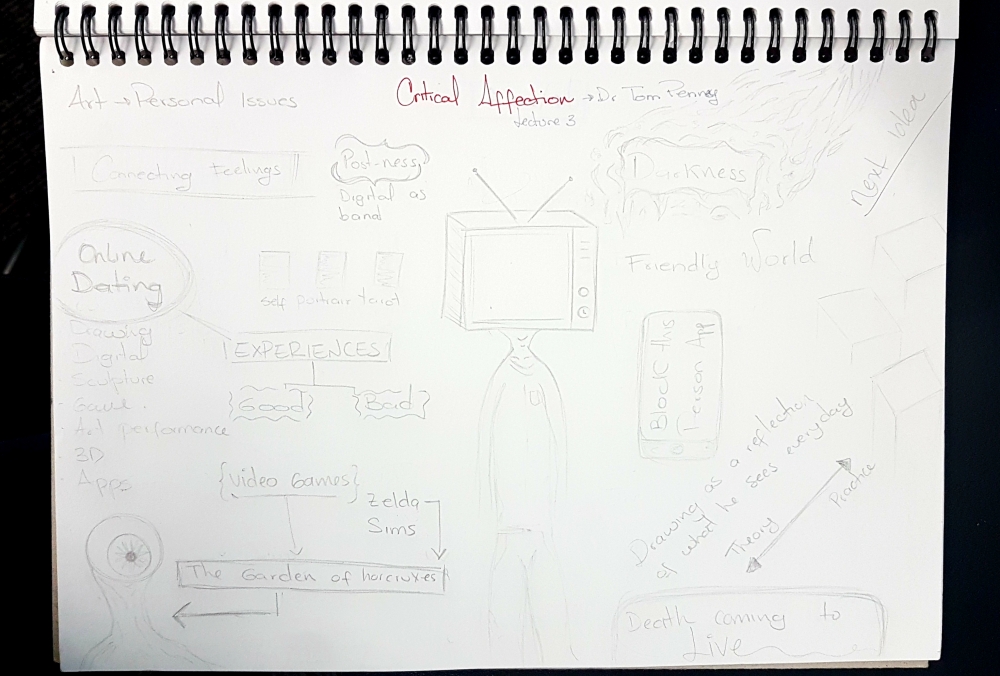 Art → Personal Issues
Critical Affection → Dr Tom Penney
Lecture 3
Connecting Feelings
Post-ness
Digital as
band
Darkness
next idea
Online
Dating
self portrair
Friendly World
Drawing
Digital
Sculpture
Game.
Art performance
3D
Apps
EXPERIENCES
Good
Bad
Block this
Person App
Video Games
Zelda
Sims
The Garden of horcruxes
Drawing as a reflection
of what he sees everyday
Theory
Practice
Death coming to
Live